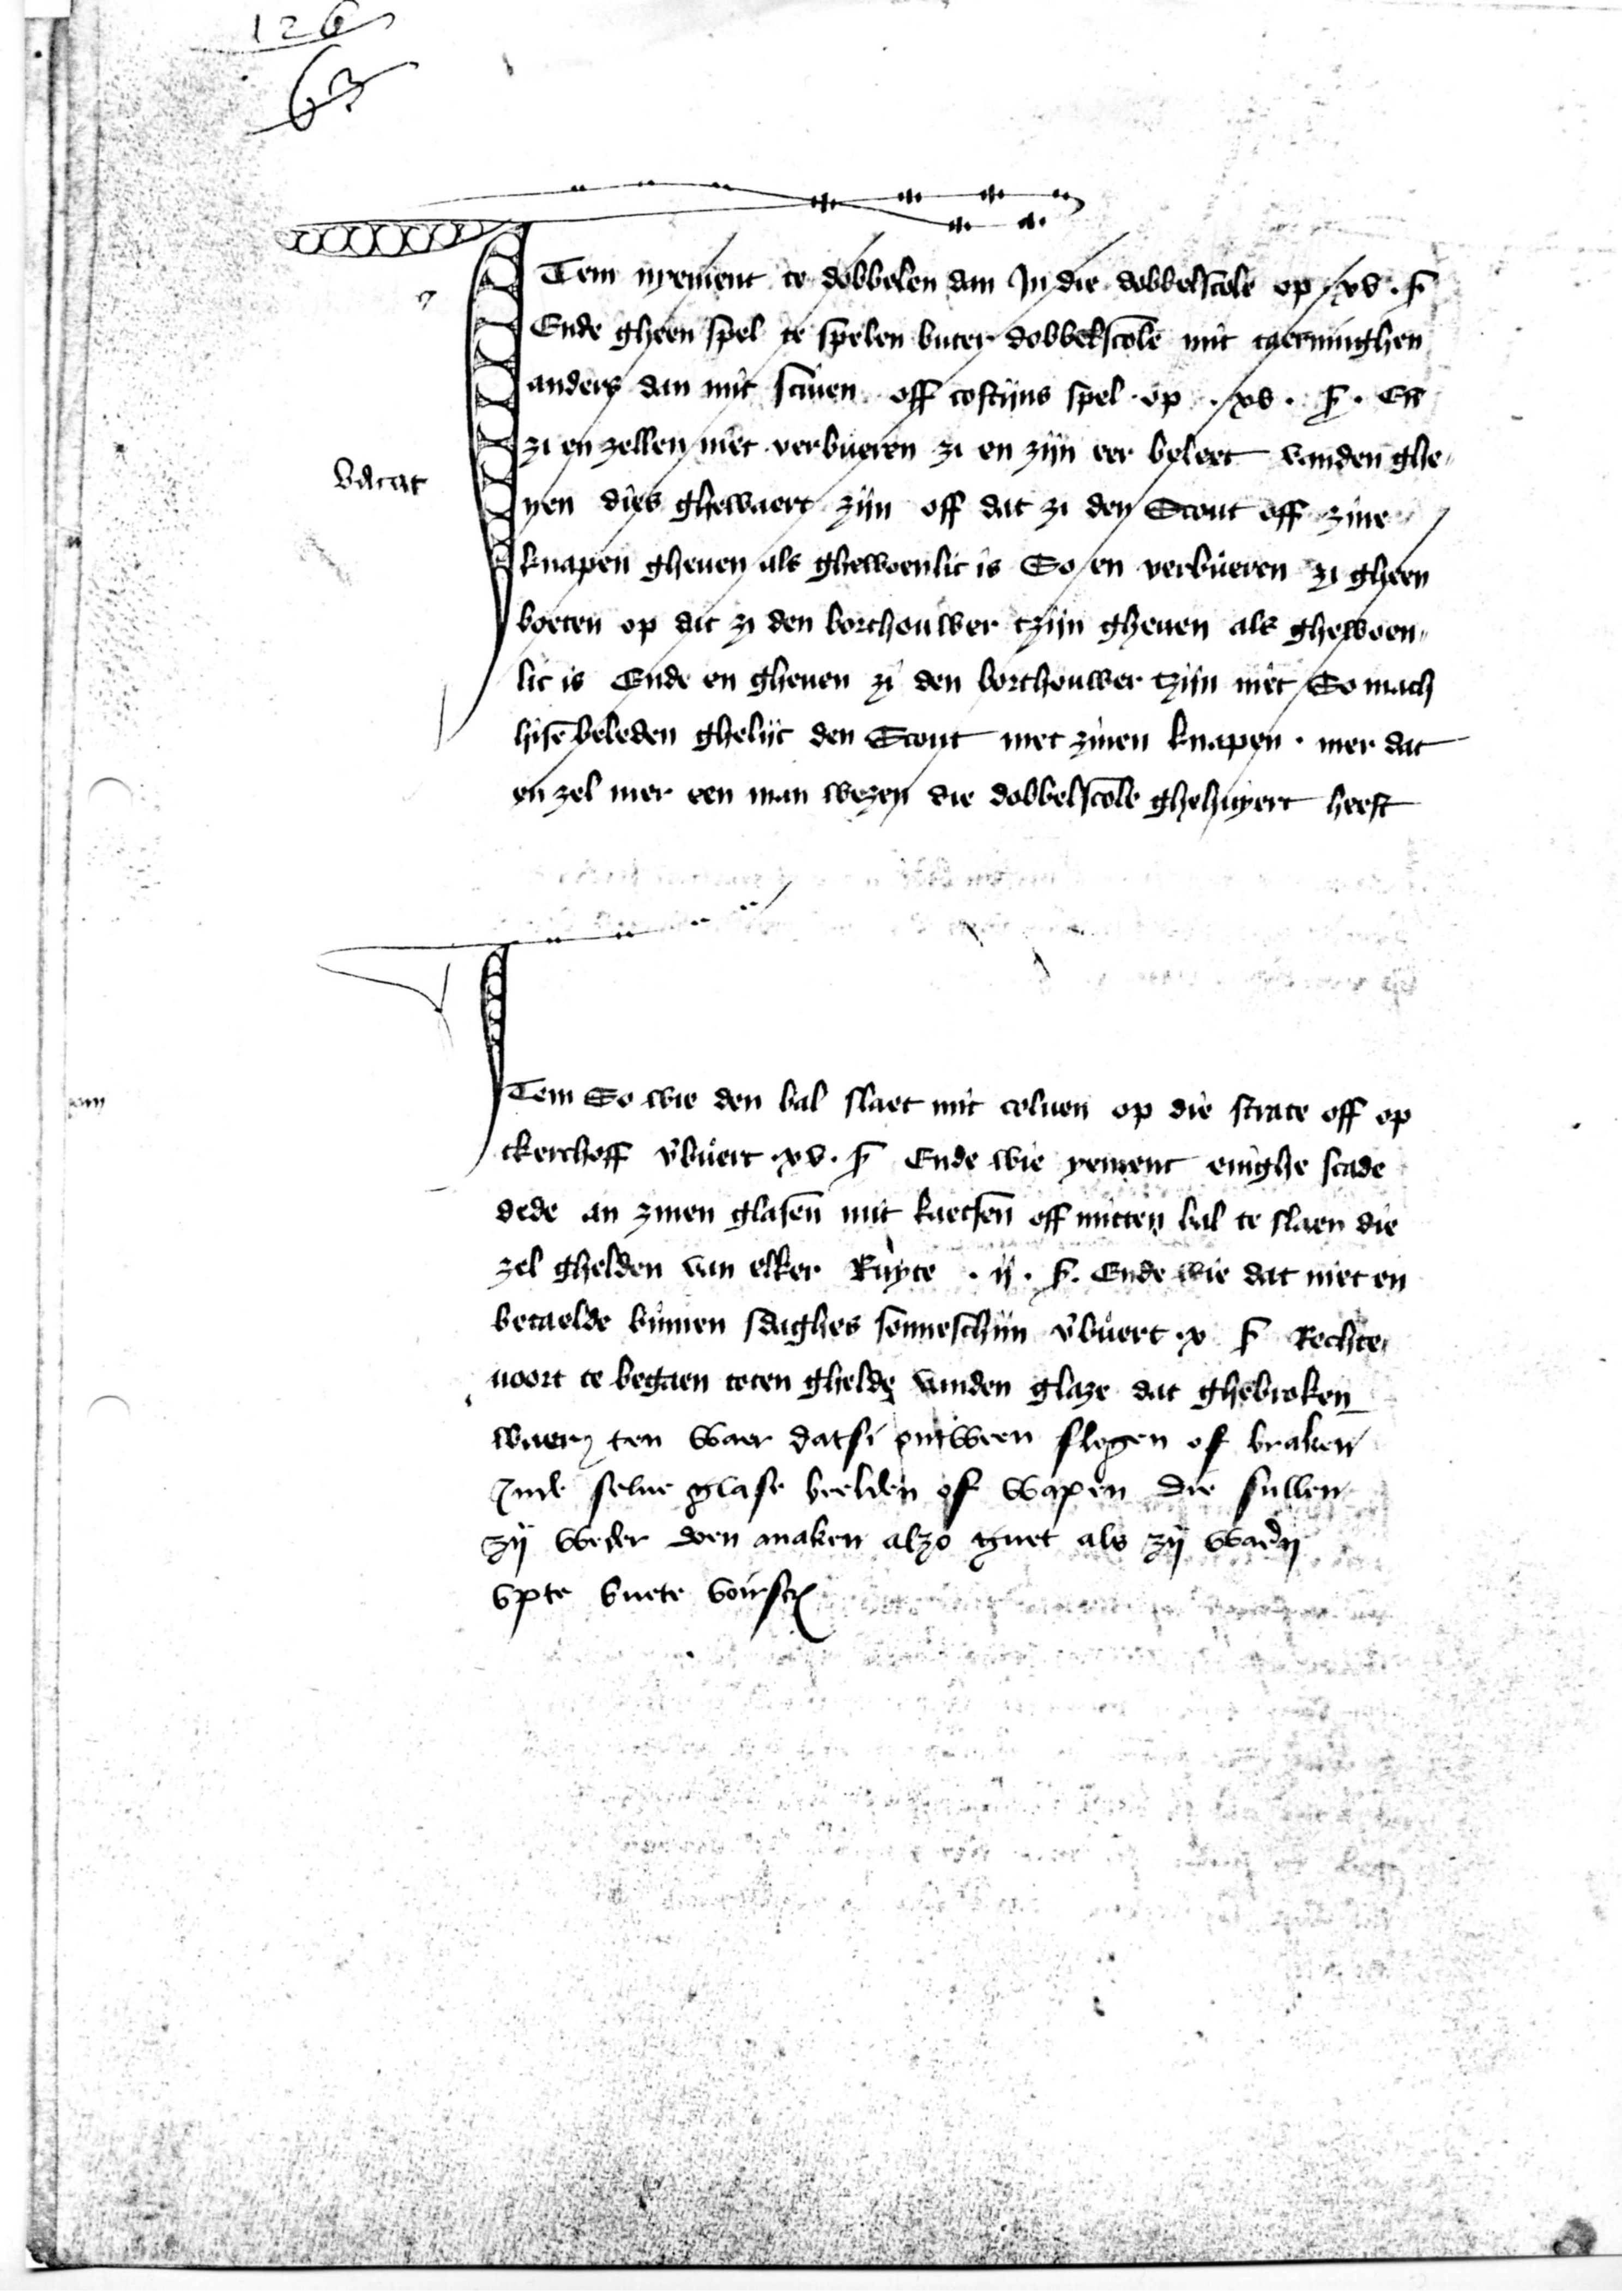 126
63
Item nyement te dobbelen dan In die dobbelscole op xv . ß
Ende gheen spel te spelen buter dobbelscole mit taerninghen
anders dan mit sciven off costijns spel op . xv . ß . En̄
zi en zellen niet verbueren zi en zijn eer beleet vanden ghe„
nen dies ghewaert zijn off dat zi den Scout off zine
vacat
knapen gheuen als ghewoenlic is So en verbueren zi gheen
boeten op dat zi den borchouwer tzijn gheuen als ghewoen„
lic is Ende en gheuen zi den borchouwer tzijn niet So mach
hise beleden ghelijc den Scout met zinen knapen . mer dat
en zel mer een man wezen die dobbelscole ghehuyert heeft
Item So wie den bal slaet mit coluen op die strate off op
tkerchoff v̄buert . xv . ß Ende wie yement enighe scade
dede an zinen glasen̄ mit kaetsen̄ off mitten bal te slaen die
zel ghelden van elker Ruyte . ij . ß . Ende wie dat niet en
betaelde binnen sdaghes sonneschijn v̄buert . x ß Rechte„
uoort te begaen toten ghelde vanden glaze dat ghebroken
waer ten waer datsi ontween slogen of braken
Inde selue glase beelden of wapen die sullen
zij weder doen maken alzo guet als zij waeren
vpte buete voirscr